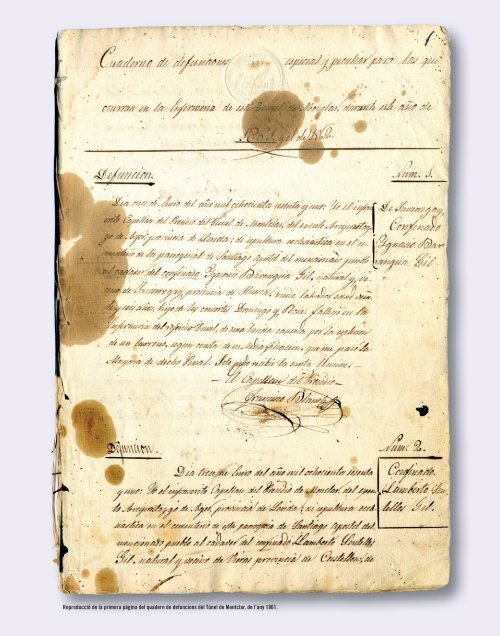 1
Cuaderno de defunciones especial y peculiar para las que
ocurran en la Enfermeria de este Tunel de Monclar, durante este año de
y el de 1862.
Defuncion. Num. 1.
Dia once de Enero del año mil ochocientos sesenta y uno: Yo el infras-
crito Capellan del Presidio del Tunel de Monclar,
go de Ager, provincia de Lerida; di sepultura ecclesiastica en el ce-
menterio de la parroquial de Santiago Apostol del mencionado pueblo
al cadaver del confinado Ignacio Barrangua Gil, natural y ve-
cino de provincia de Huesca, viudo, labrador, edad vein-
te y seis años, hijo de los consortes Domingo y falleció en la
Enfermeria del referido Tunel, de una herida causada por la esplosion
de un barreno, segun consta de su media filiacion, que me pasó la
Mayoria de dicho Penal. Solo pudo recibir la santa Uncion.
El Capellan del Presidio
Confinado
Ignacio Bar-
rangua Gil.
Defuncion. Num. 2.
Dia trece de Enero del año mil ochocientos sesenta
y uno: Yo el infrascrito Capellan del Presidio de Monclar,
de Ager, provincia de Lerida; di sepultura eccle-
siastica en el cementerio de esta parroquia de Santiago Apostol del
mencionado pueblo al cadaver del confinado Llamberto
Gil, natural y vecino de provincia de Castellon, de
Confinado
Llamberto
Gil.
Reproducció de la primera pàgina del quadern de defuncions del Túnel de Montclar, de l'any 1861.